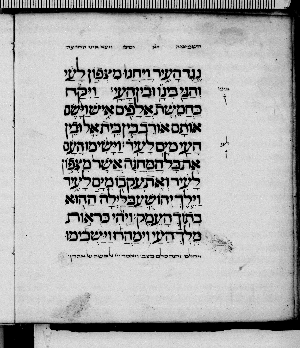 נגד העיר ויחנו מצפון לעי
והגי בינו ובין העי ויקח
כחמשת אלפים איש וישם
אותם אורב בין בית אל ובין
העי מים לעיר וישימו העם
את כל המחנה אשר מצפון
לעיר ואת עקבו מים לעיר
וילך יהושע בלילה ההוא
בתוך העמק ויהי כראות
מלך העי וימהרו וישכימו